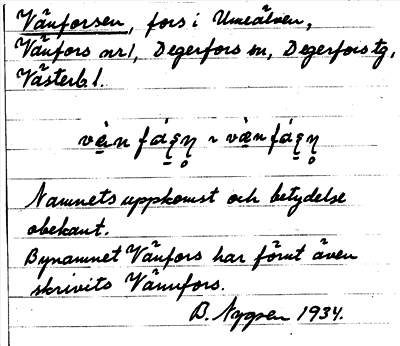 Vänforsen, fors i Umeälven,
Vänfors nr 1, Degerfors sn, Degerfors tg,
Västerb l.
Namnets uppkomst och betydelse
obekant.
Bynamnet Vänfors har förut även
skrivits Vännfors.
B. Nygren 1934.